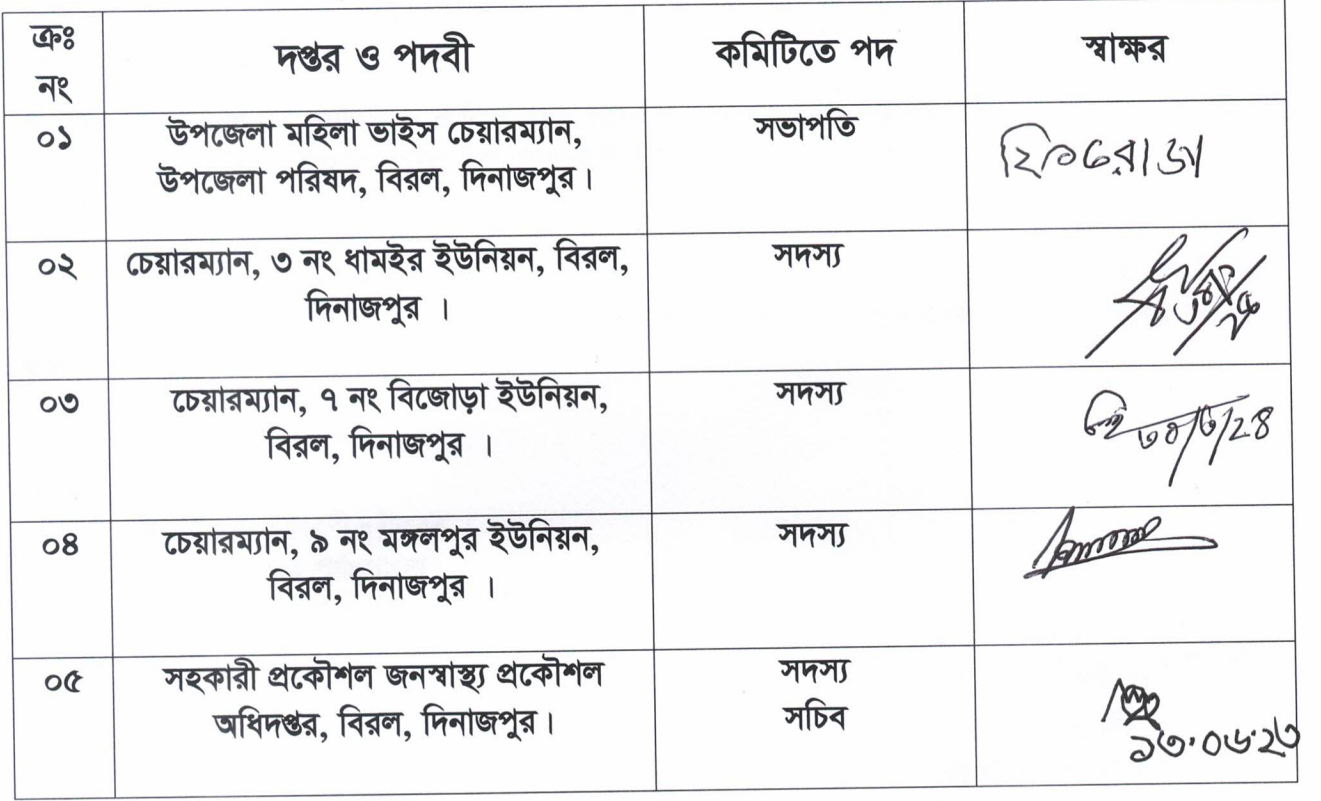 ক্রঃ
নং
দপ্তর ও পদবী
কমিটিতে পদ
স্বাক্ষর
০১
উপজেলা মহিলা ভাইস চেয়ারম্যান,
উপজেলা পরিষদ, বিরল, দিনাজপুর।
সভাপতি
০২
চেয়ারম্যান, ৩ নং ধামইর ইউনিয়ন, বিরল,
দিনাজপুর ।
সদস্য
০৩
চেয়ারম্যান, ৭ নং বিজোড়া ইউনিয়ন,
বিরল, দিনাজপুর ।
সদস্য
০৪
চেয়ারম্যান, ৯ নং মঙ্গলপুর ইউনিয়ন,
বিরল, দিনাজপুর ।
সদস্য
০৫
সহকারী প্রকৌশল জনস্বাস্থ্য প্রকৌশল
অধিদপ্তর, বিরল, দিনাজপুর।
সদস্য
সচিব
১৩.০৬.২৩